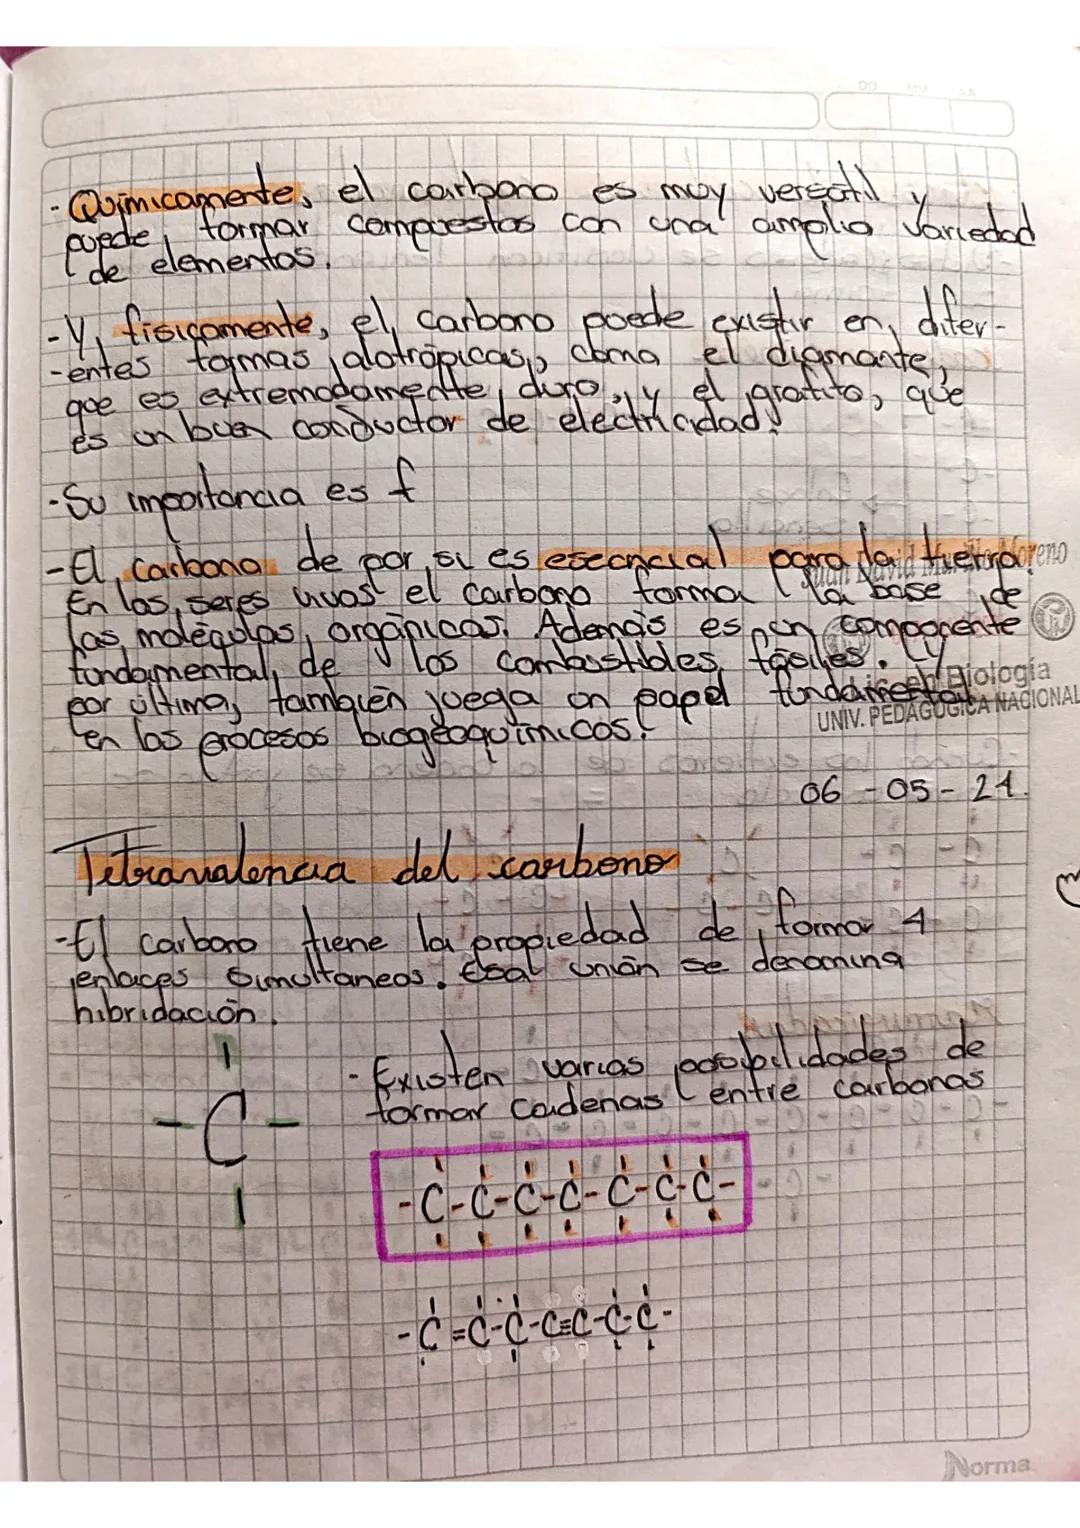 - Quimicamente, el carbono es muy versátil y
puede formar compuestos con una amplia variedad
de elementos.
- Y, fisicamente, el carbono puede existir en difer-
-entes formas alotrópicas, como el diamante,
que es extremadamente duro, y el grafito, que
es un buen conductor de electricidad.
- Su importancia es f
- El carbono de por si es esecncial para la tierra.
En los seres vivos el carbono forma la base de
las moléculas orgánicas. Además es un componente
fundamental de los combustibles fósiles. Y
por último, también juega un papel fundamental
en los procesos biogeoquímicos.
Juan David Moreno
Lic. en Biología
UNIV. PEDAGÓGICA NACIONAL
06 - 05 - 21.
Tetravalencia del carbono
- El carbono tiene la propiedad de formar 4
enlaces simultaneos. Esal unión se denomina
hibridación.
- C -
- Existen varias posibilidades de
formar cadenas entre carbonos
-C-C-C-C-C-C-C-
-C=C-C-C≡C-C-C-
Norma